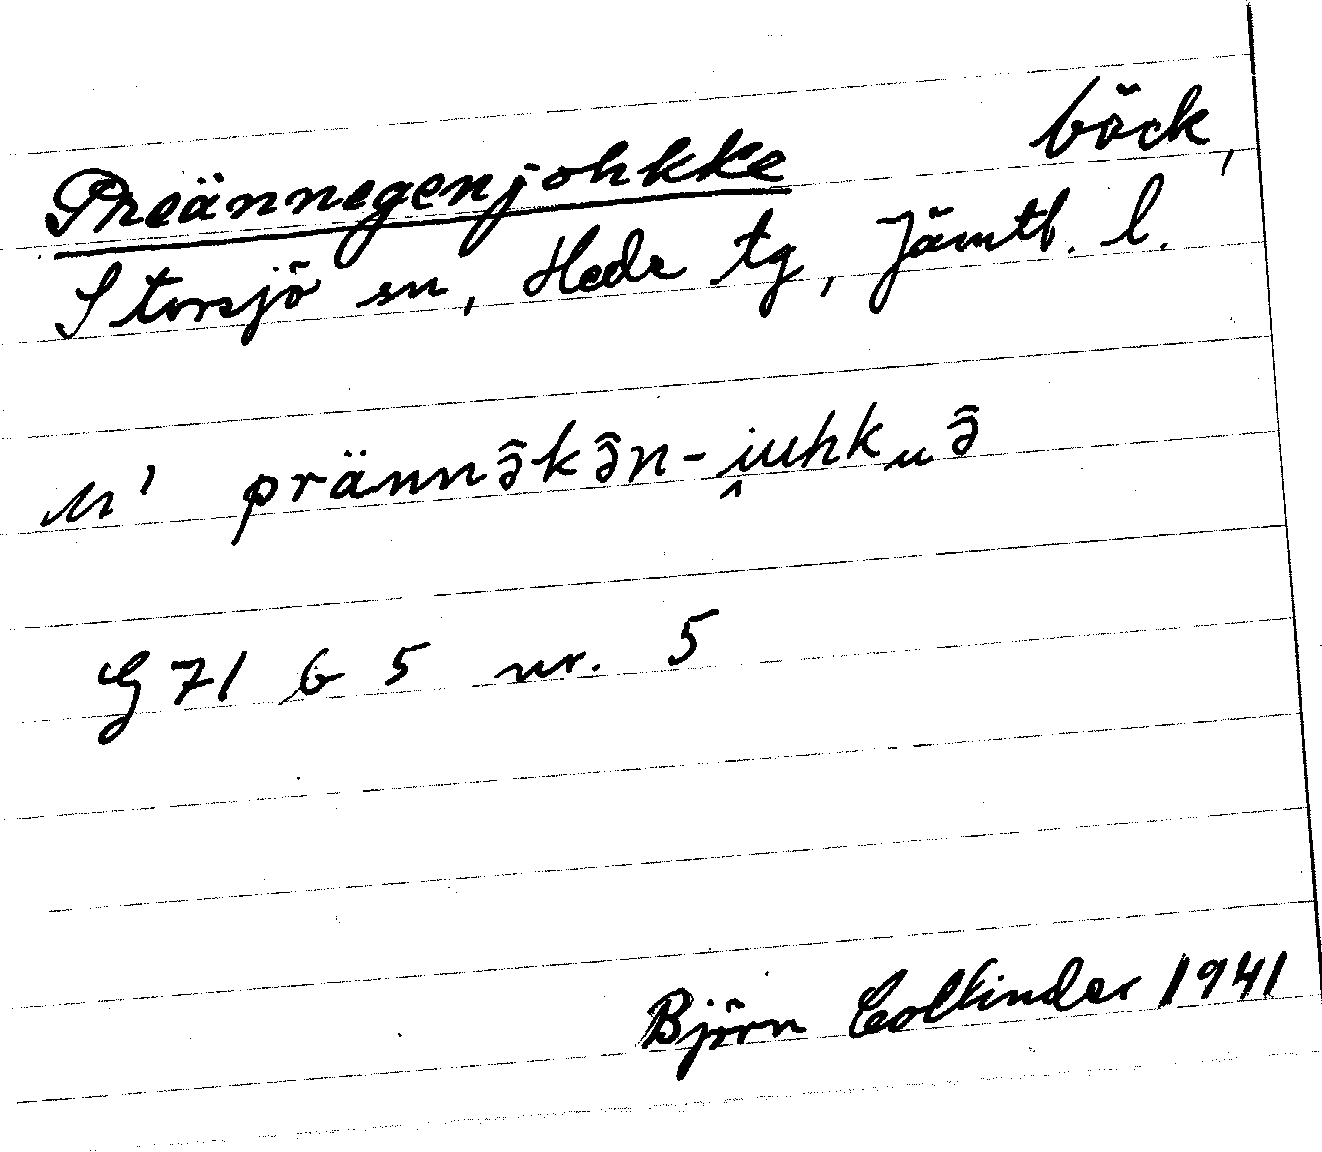 Preännegenjohkke bäck,
Storsjö sn, Hede tg, Jämtl. l.
prännə̑kə̑n-i̭uhkᵤə̑
G 71 b 5 nr. 5
Björn Collinder 1941